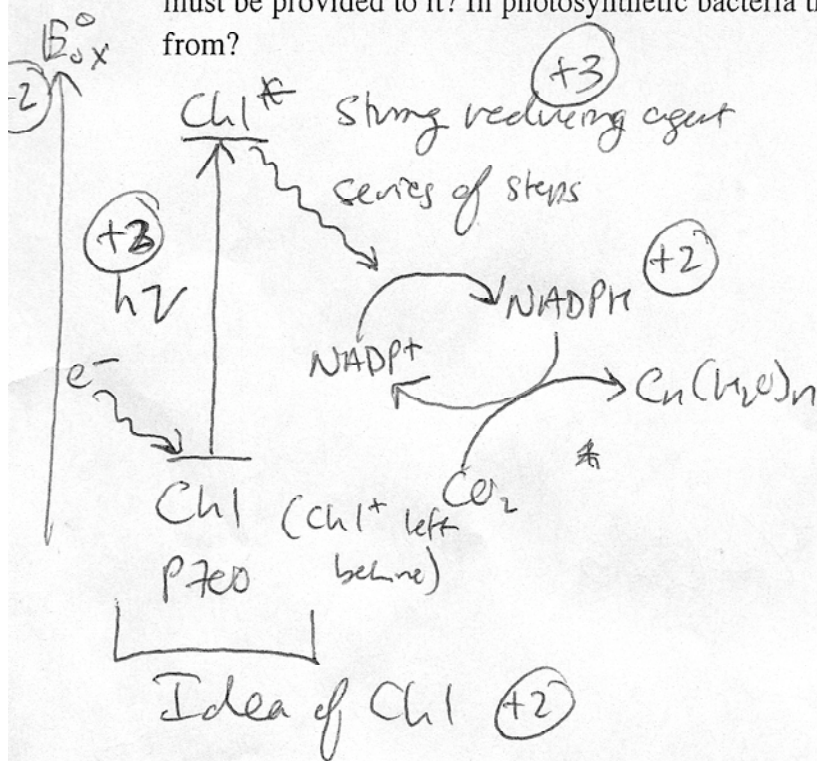 must be provided to it? In photosynthetic bacteria th
from?
E°ox
2
+3
Chl* Strong reducing agent
series of steps
hν
+2
NADPH
NADP+
e-
Cn(H2O)n
CO2
Chl (Chl+ left
behind)
P700
Idea of Chl +2